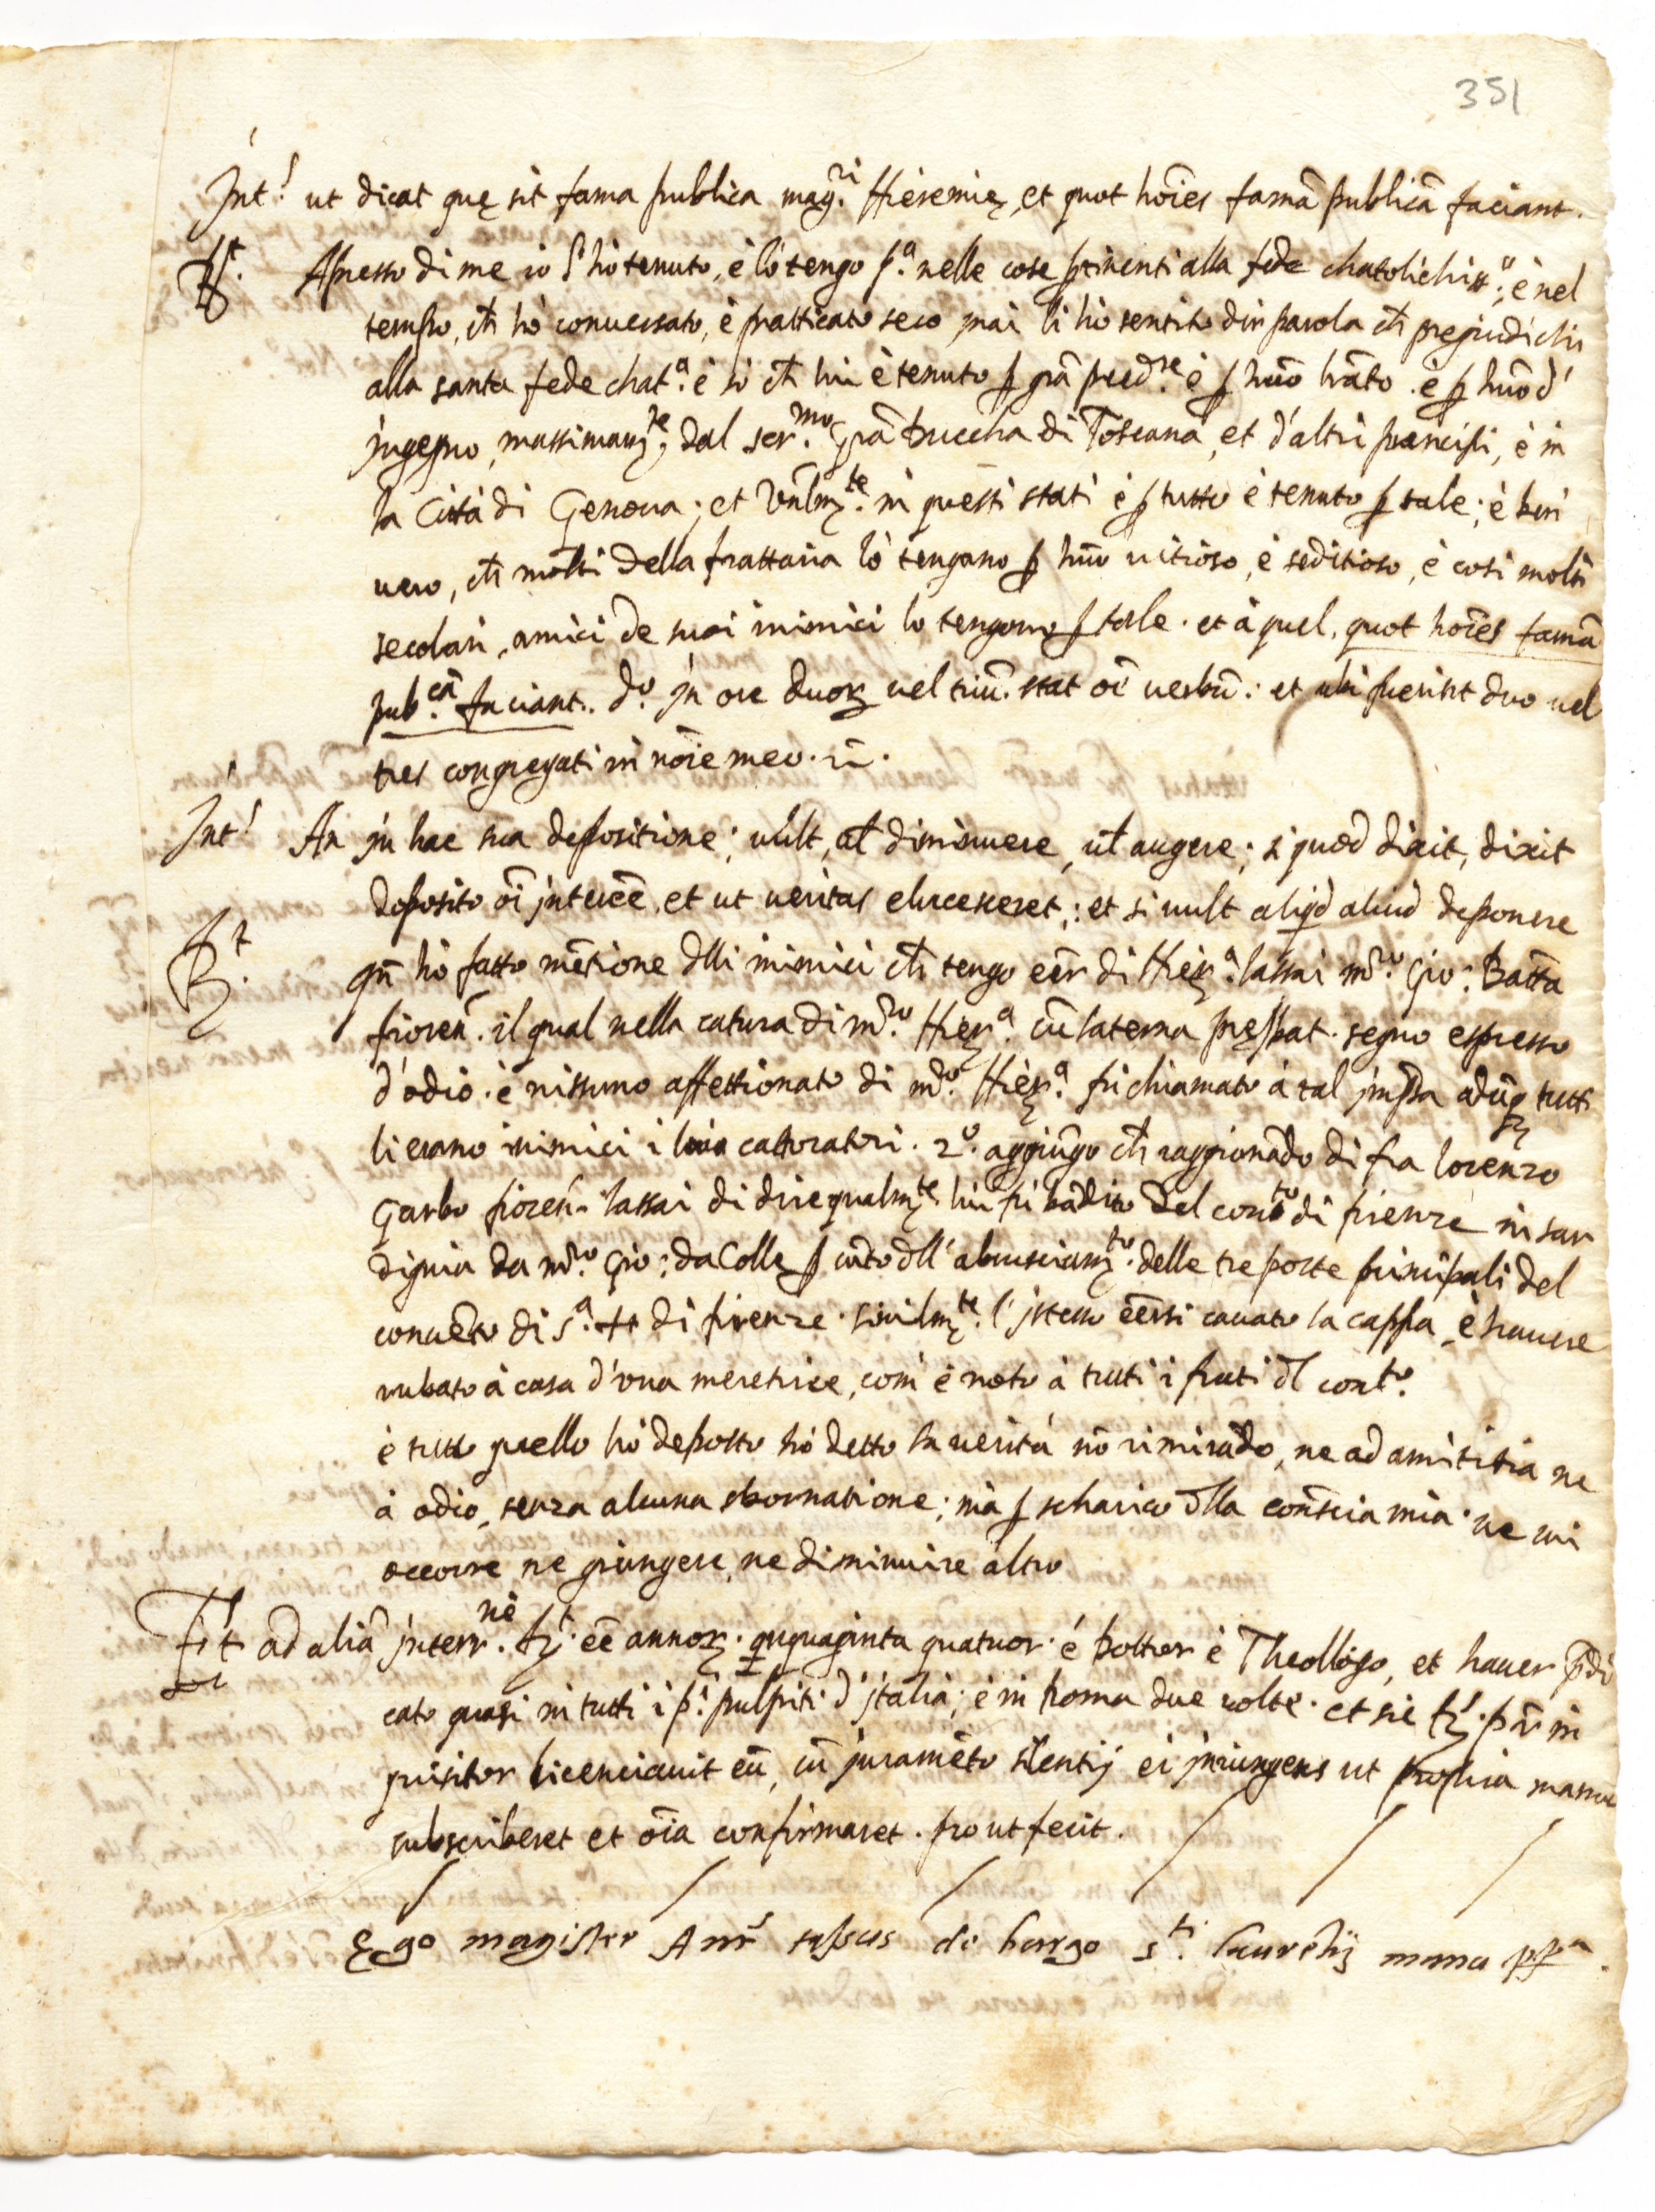 351
Int.^r ut dicat quę sit fama publica mag.^ri Hieremię, et quot hoīes famā publicā faciant.
R.^t Apresso di me io l'hò tenuto, è lò tengo p.^a nelle cose ꝑtinenti alla fede chatolichiss.^o; è nel
tempo, ch̄ hò conversato, è pratticato seco, mai li hò sentito dir parola ch̄ pregiudichi
alla santa fede chat.^a è sò ch̄ lui è tenuto ꝑ grā pred.^re è ꝑ huō lr̄ato è ꝑ huō d'
ingegno, massimam.^te dal ser.^mo Grā Duccha di Toscana, et d'altri prencipi, è in
la Città di Genova; et un̄lm.^te in questi stati è ꝑ tutto è tenuto ꝑ tale; è ben
vero, ch̄ molti della frattaria lò tengano ꝑ huō vitioso, è seditioso, è così molti
secolari, amici de suoi inimici lo tengono ꝑ tale. et à quel, quot hoīes famā
pub.^cā faciant. d.^o in ore duoꝝ vel triū stat oē verbū: et ubi fuerint duo vel
tres congregati in nōie meo.
Int.^r An in hac sua depositione; vult, al' diminuere, ut augere; si quod dixit, dixit
deposito oī interēe, et ut veritas elucesceret; et si vult aliqd aliud deponere
R.^t qn̄ hò fatto mētione dlli inimici ch̄ tengo eēr di Hier.^a lassai m.^ro Gio: Batta
fioren̄. il qual nella catura di m.^ro Hier.^a cū laterna pręibat. segno espresso
d'odio. è nissuno affettionato di m.^ro Hier.^a fu chiamato à tal impsa adūq tutti
li erano inimici i catturatori. 2.^o aggiūgo ch̄ raggionādo di fra lorenzo
Garbo fioren̄. lassai di dire qualm.^te lui fu bādito del con.^to di firenze in sar
digna da m.^ro Gio: da Colle ꝑ cōto dll' abrusciam.^to delle tre porte principali del
convēto di S.^a + di firenze. similm.^te l'istesso eērsi cavato la cappa, è havere
rubato à casa d'una meretrice, com' è noto à tutti i frati dl conv.^to.
è tutto quello hò deposto hò detto la verità nō rimirādo, ne ad amicitia ne
à odio, senza alcuna sbornatione; mà ꝑ scharico dlla conscia mia. ne mi
occorre ne giungere, ne diminuire altro
R.^t ad aliā interr.^nē eē annoꝝ. quīquaginta quatuor. é dottor è Theollogo, et haver p̄di
cato quasi in tutti i p.^i pulpiti d'italia; è in Roma due volte. et sic pr̄ in
quisitor licenciavit eū, cū juramēto silentij ei iniungens ut propria manu
subscriberet et oīa confirmaret. prout fecit.
Ego magister Ant.^s de burgo s.^ti laurētij manu pp.^a.